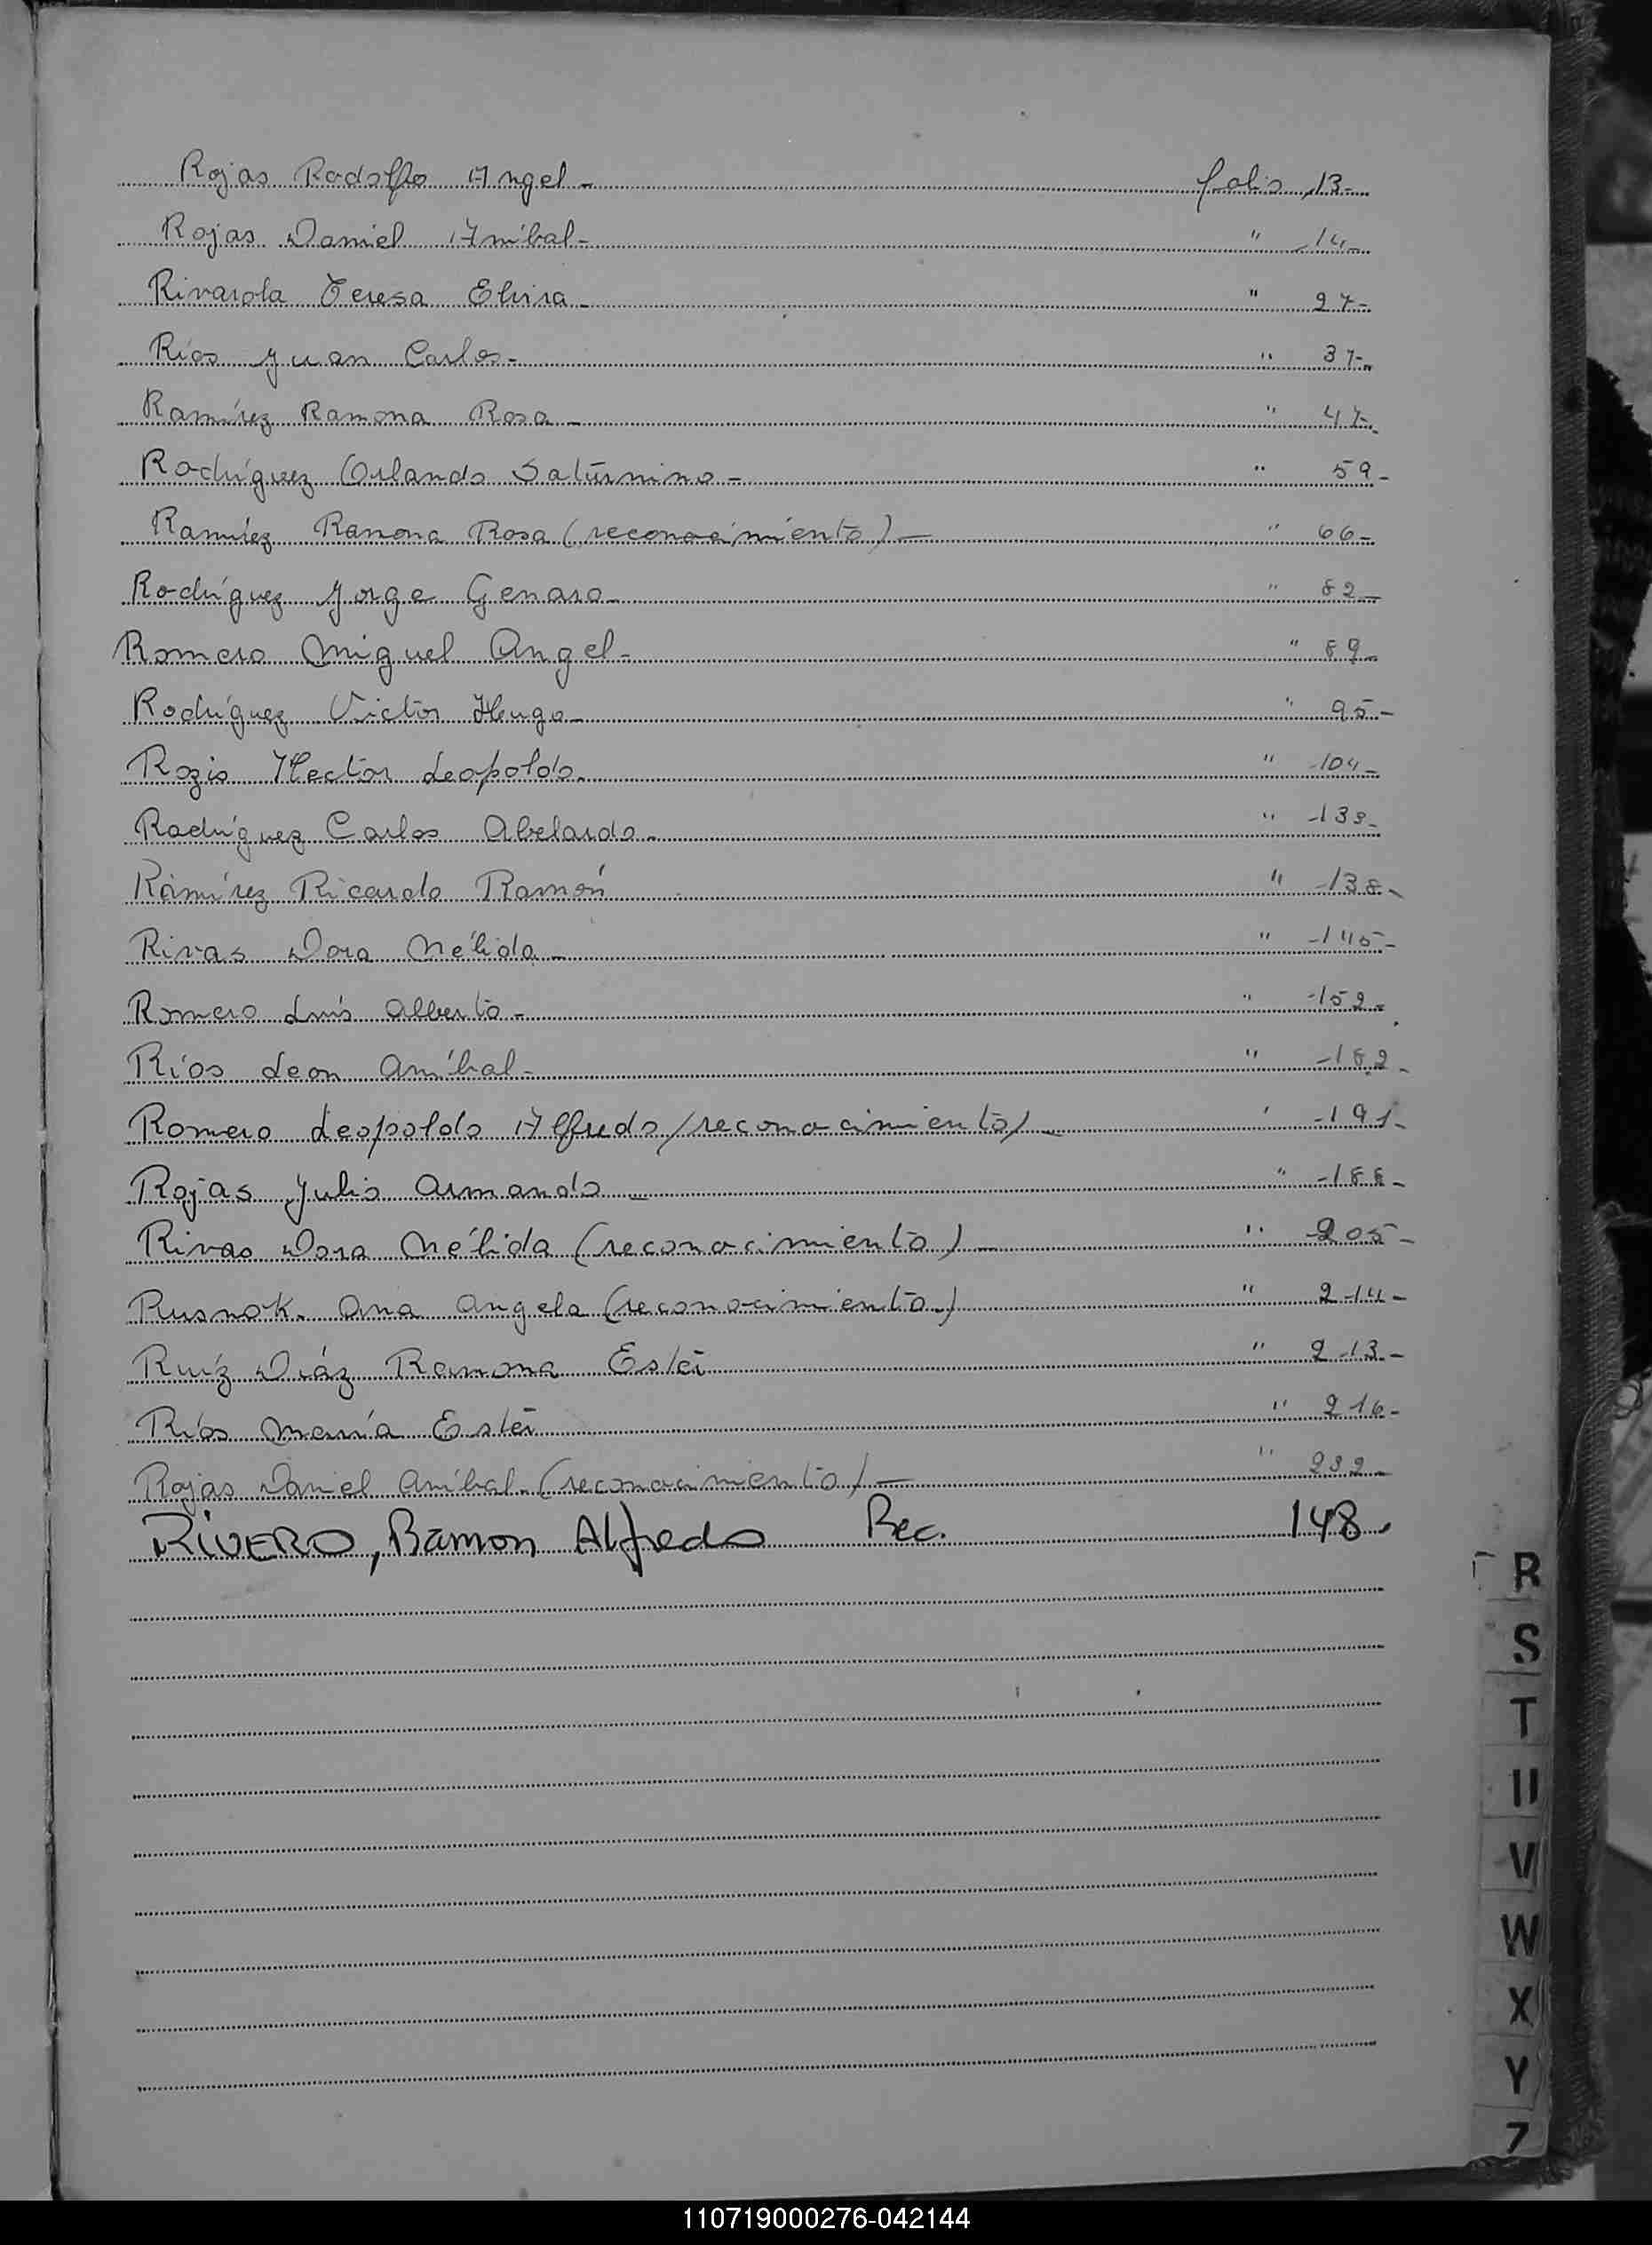 Rojas Rodolfo Angel - folio 13-
Rojas Daniel Aníbal- " 14-
Rivarola Teresa Elvira- " 27-
Ríos Juan Carlos- " 37-
Ramírez Ramona Rosa- " 47-
Rodríguez Orlando Saturnino- " 59-
Ramírez Ramona Rosa (reconocimiento)- " 66-
Rodríguez Jorge Genaro- " 82-
Romero Miguel Angel- " 89-
Rodríguez Victor Hugo- " 95-
Hector Leopoldo- " 104-
Rodríguez Carlos Abelardo- "
Ramírez Ricardo Ramón " 138-
Rivas Dora Nélida- " 145-
Romero Luis Alberto- " 152-
Ríos Leon Aníbal- " 182-
Romero Leopoldo Alfredo (reconocimiento)- ' 191-
Rojas Julio Armando- " 188-
Rivas Dora Nélida (reconocimiento)- " 205-
Rusnok. Ana Angela (reconocimiento) " 214-
Ruíz Díaz Ramona Ester " 213-
Ríos María Ester " 216-
Rojas Daniel Aníbal-(reconocimiento)- " 232-
RIVERO, Ramon Alfredo Rec. 148.
R
S
T
U
V
W
X
Y
Z
110719000276-042144